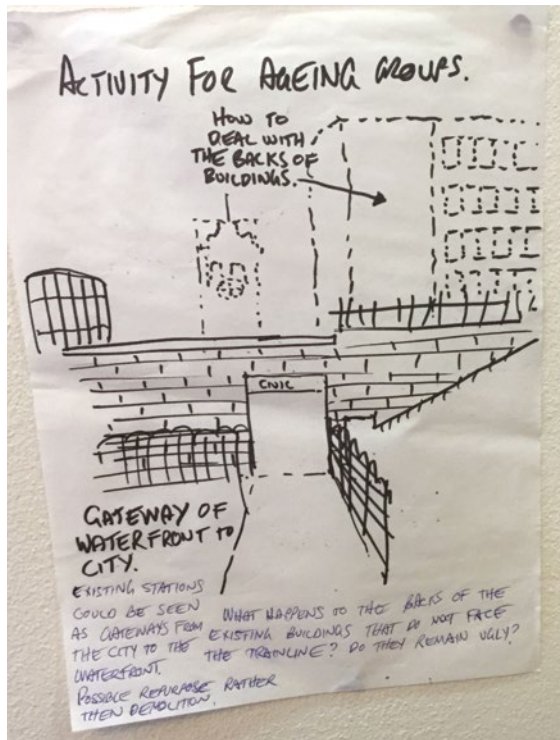 ACTIVITY FOR AGEING GROUPS.
HOW TO
DEAL WITH
THE BACKS OF
BUILDINGS.
CIVIC
GATEWAY OF
WATERFRONT to
CITY.
EXISTING STATIONS
COULD BE SEEN
AS GATEWAYS FROM
THE CITY TO THE
WATERFRONT.
POSSIBLE REPURPOSE RATHER
THEN DEMOLITION.
WHAT HAPPENS TO THE BACKS OF THE
EXISTING BUILDINGS THAT DO NOT FACE
THE TRAINLINE? DO THEY REMAIN UGLY?